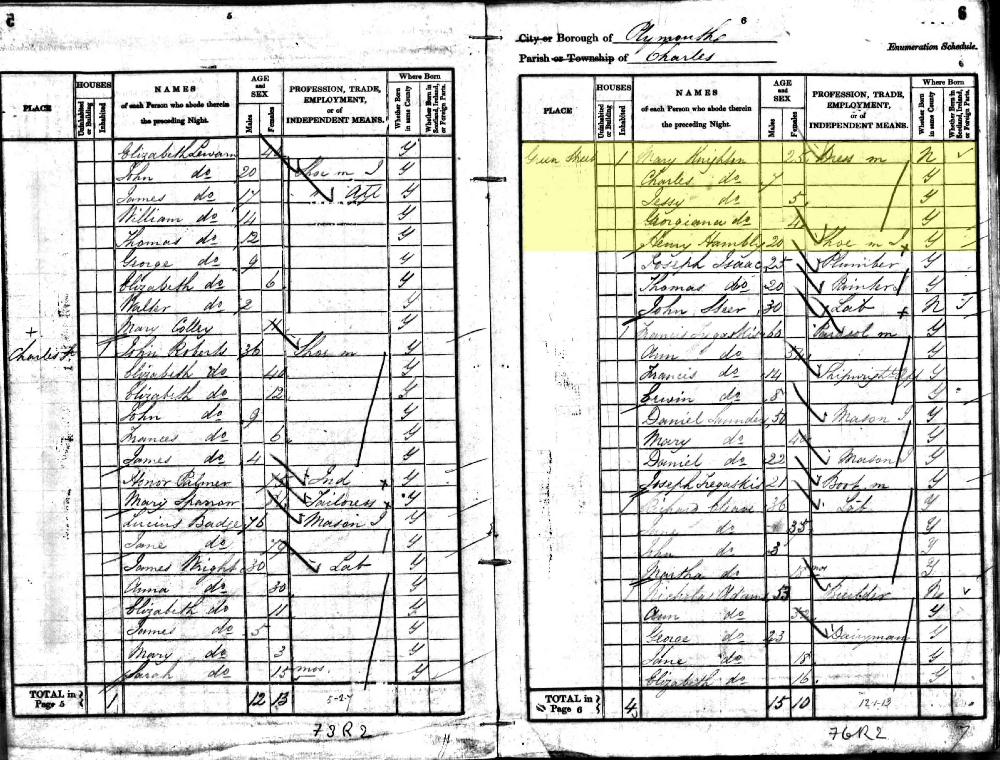 5
5
PLACE
HOUSES
Uninhabited or Building
Inhabited
NAMES
of each Person who abode therein
the preceding Night.
AGE and SEX
Males
Females
PROFESSION, TRADE,
EMPLOYMENT,
or of
INDEPENDENT MEANS.
Where Born
Whether Born in same County
Whether Born in Scotland, Ireland, or Foreign Parts.
Elizabeth 40 Y
John do 20 Shoe m J Y
James do 17 Y
William do 14 Y
Thomas do 12 Y
George do 9 Y
Elizabeth do 6 Y
Walter do 2 Y
Mary Colley Y
Charles St 1 John Roberts 36 Shoe m Y
Elizabeth do 40 Y
Elizabeth do 12 Y
John do 9 Y
Frances do 6 Y
James do 4 Y
Palmer Ind Y
Mary Sparrow Tailoress Y
Lucius Badge 76 Mason J Y
Jane do Y
James Wright 30 Lab Y
Anna do 30 Y
Elizabeth do 11 Y
James do 5 Y
Mary do 3 Y
Sarah do 15 mos Y
TOTAL in Page 5 1 12 13
73R2
6
6
City or Borough of Plymouth
Parish or Township of Charles
Enumeration Schedule.
PLACE
HOUSES
Uninhabited or Building
Inhabited
NAMES
of each Person who abode therein
the preceding Night.
AGE and SEX
Males
Females
PROFESSION, TRADE,
EMPLOYMENT,
or of
INDEPENDENT MEANS.
Where Born
Whether Born in same County
Whether Born in Scotland, Ireland, or Foreign Parts.
Green Street 1 Mary Knighton 25 Dress m N
Charles do 7 Y
Jessy do 5 Y
Georgiana do Y
Henry Hambly 20 Shoe m J Y
Joseph Isaac 25 Plumber Y
Thomas do 20 Printer Y
John Steer 30 Lab N
Francis 60 m Y
Ann do Y
Francis do 14 Shipwright App Y
Erwin do 8 Y
Daniel Saunders 50 Mason J Y
Mary do 40 Y
Daniel do 22 Mason J Y
Joseph Tregaskis 21 Boot m Y
Richard Cleave 36 Lab Y
do 35 Y
John do 3 Y
Martha do 15 mos Y
Nicholas Adams 53 Builder N
Ann do Y
George do 23 Dairyman Y
Jane do 15 Y
Elizabeth do 16 Y
TOTAL in Page 6 4 15 10
76R2